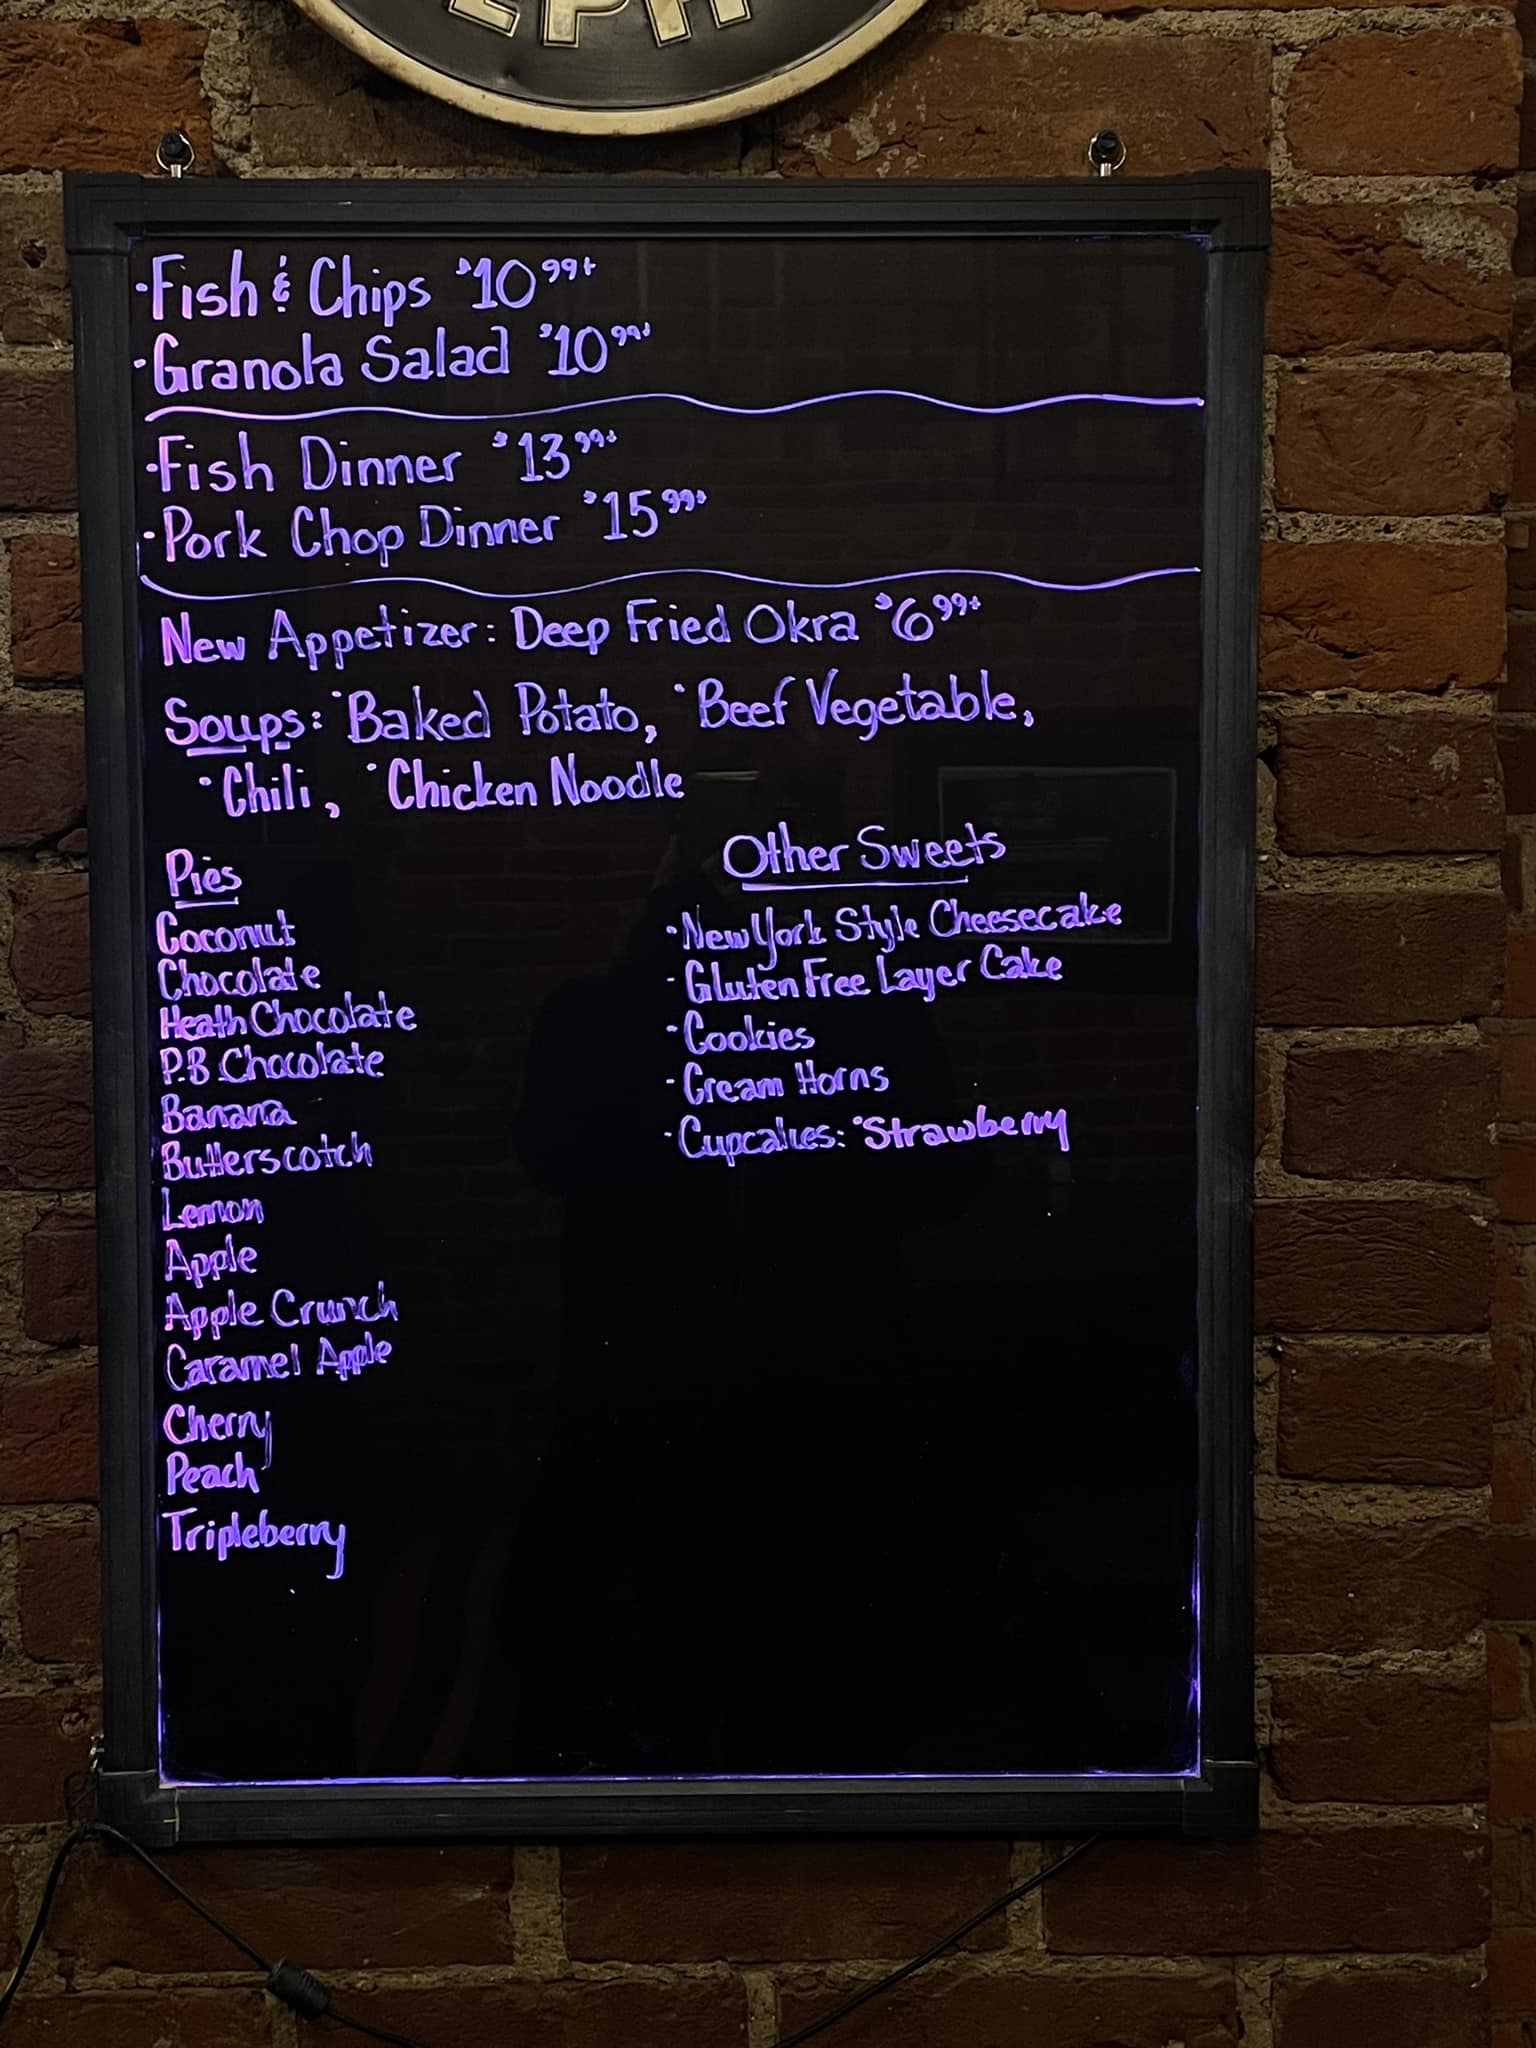 ·Fish & Chips $10.99+
·Granola Salad $10.99+
·Fish Dinner $13.99+
·Pork Chop Dinner $15.99+
New Appetizer: Deep Fried Okra $6.99+
Soups: ·Baked Potato, ·Beef Vegetable,
·Chili, ·Chicken Noodle
Pies
Coconut
Chocolate
Heath Chocolate
P.B. Chocolate
Banana
Butterscotch
Lemon
Apple
Apple Crunch
Caramel Apple
Cherry
Peach
Tripleberry
Other Sweets
·New York Style Cheesecake
·Gluten Free Layer Cake
·Cookies
·Cream Horns
·Cupcakes: ·Strawberry